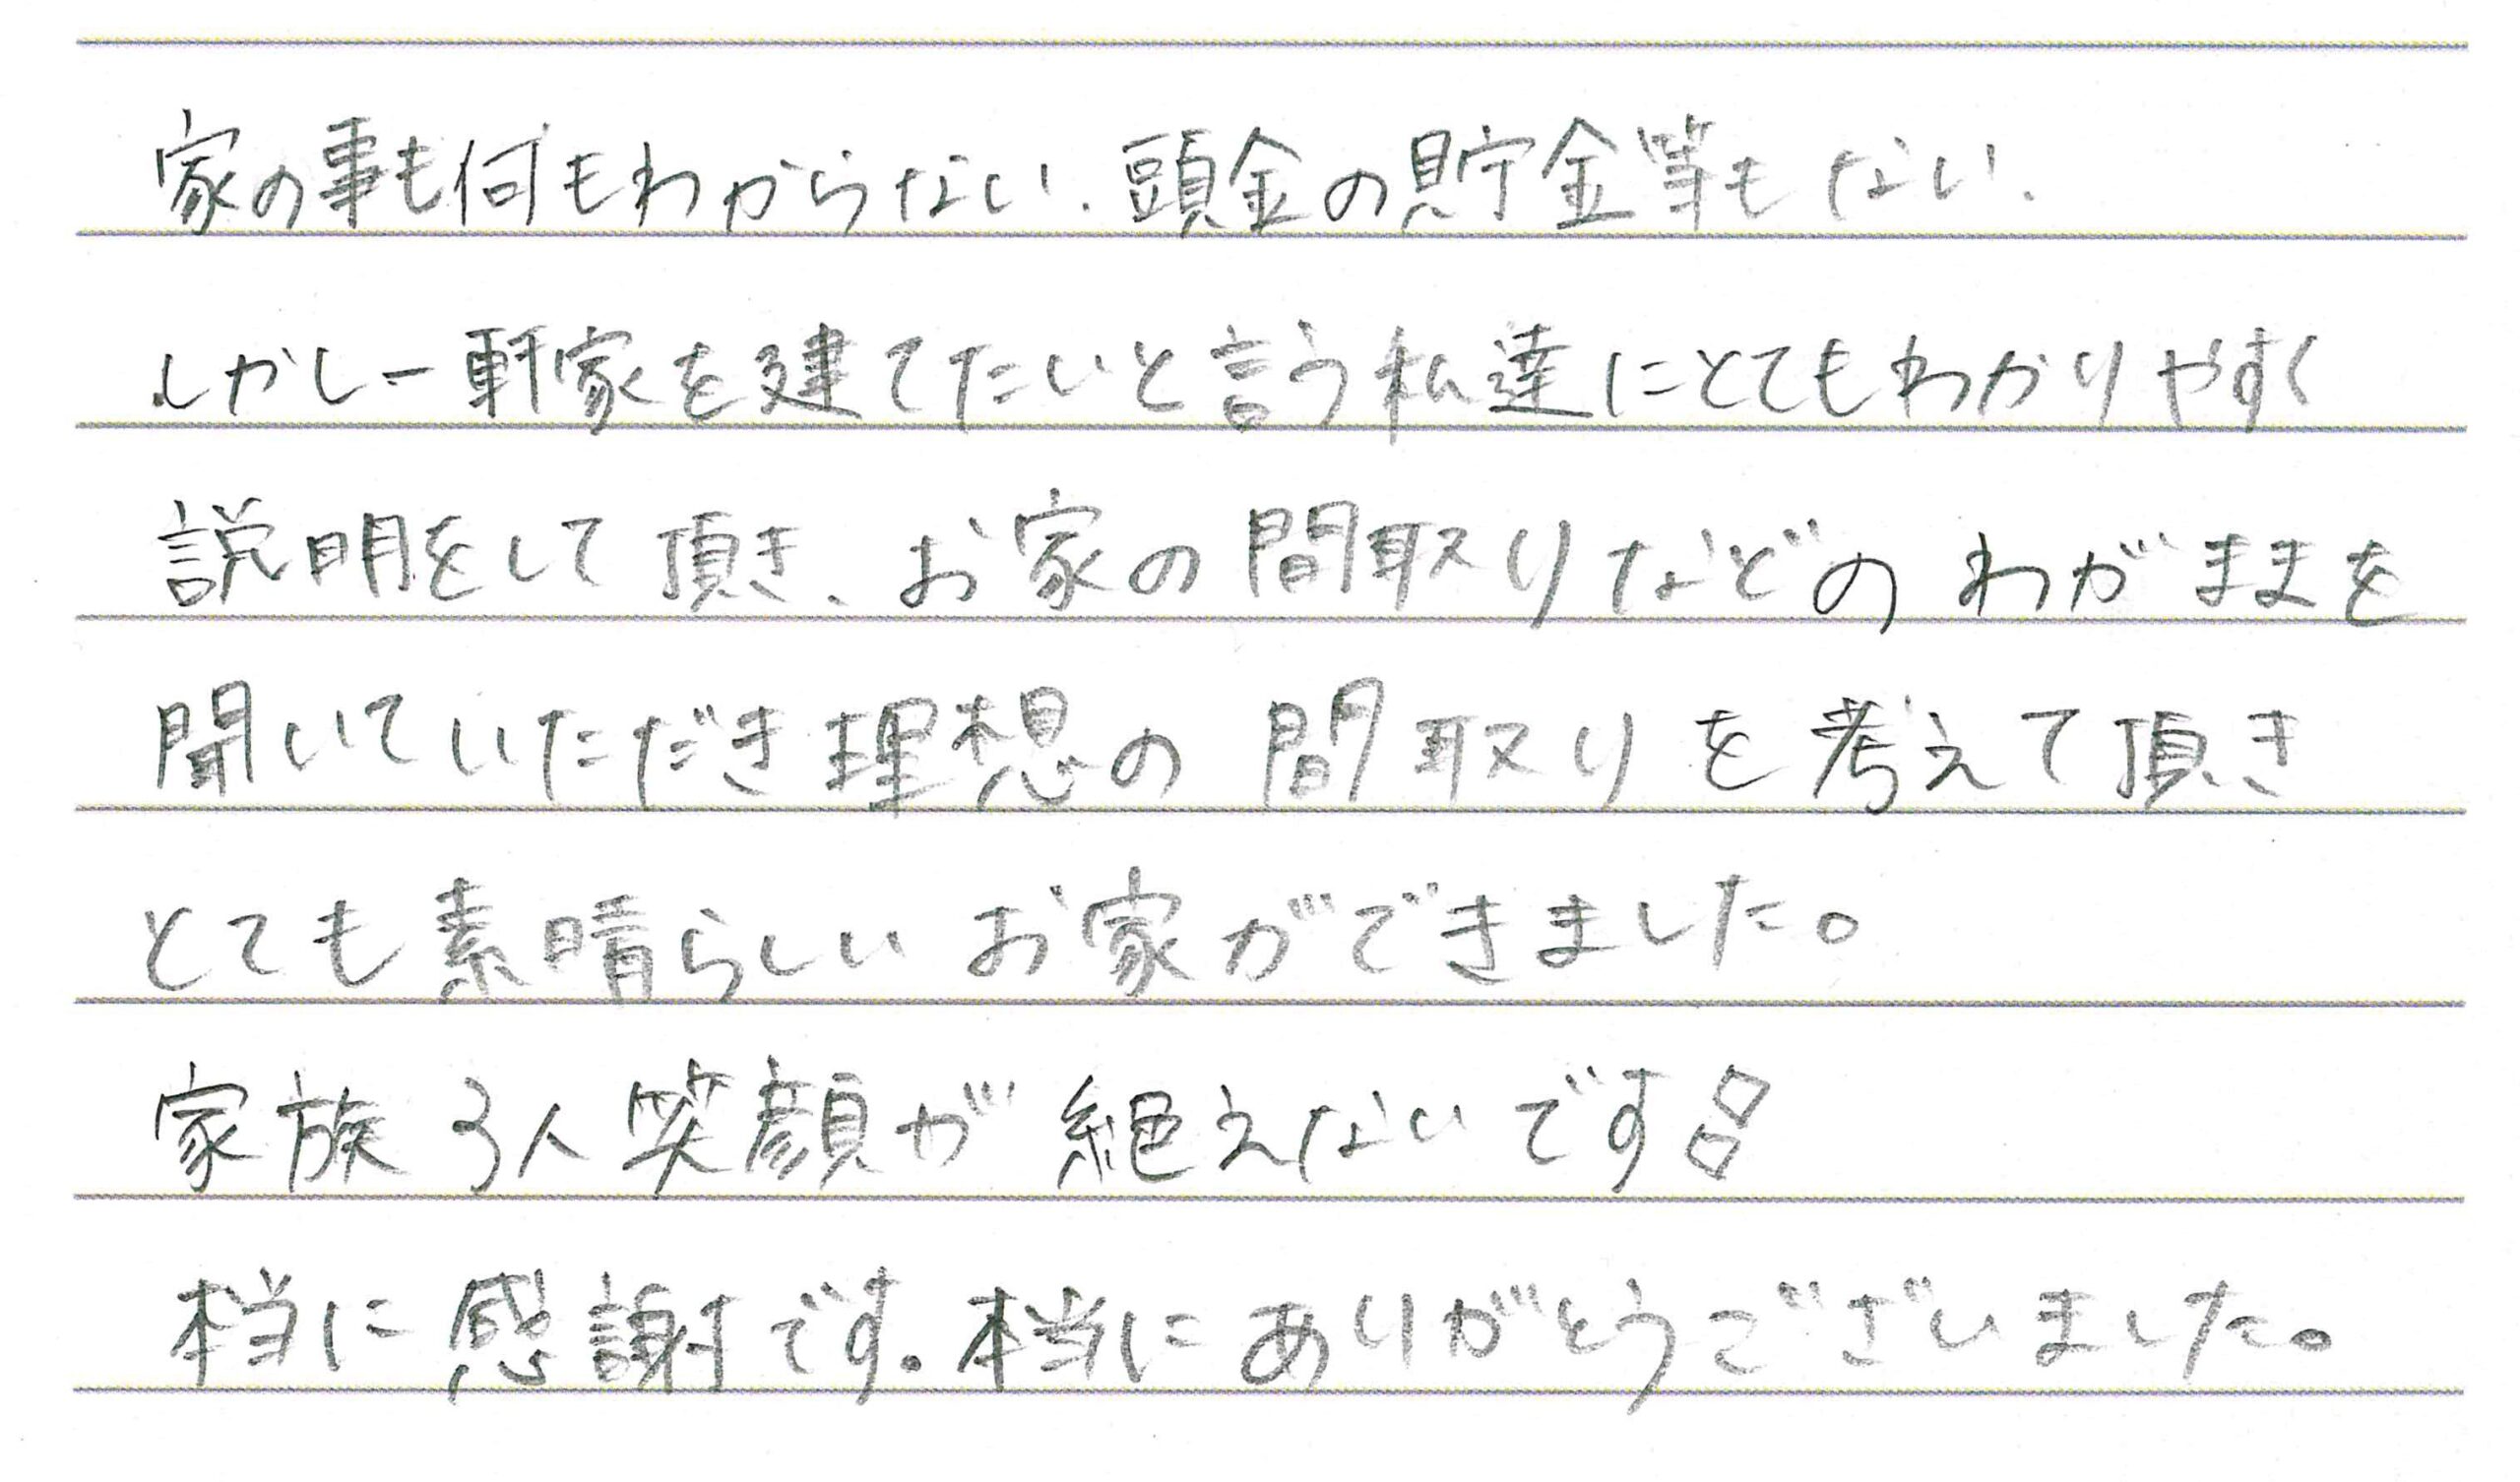 家の事も何もわからない、頭金の貯金等もない、
しかし一軒家を建てたいと言う私達にとてもわかりやすく
説明をして頂き、お家の間取りなどのわがままを
聞いていただき理想の間取りを考えて頂き
とても素晴らしいお家ができました。
家族3人笑顔が絶えないです!!
本当に感謝です。本当にありがとうございました。